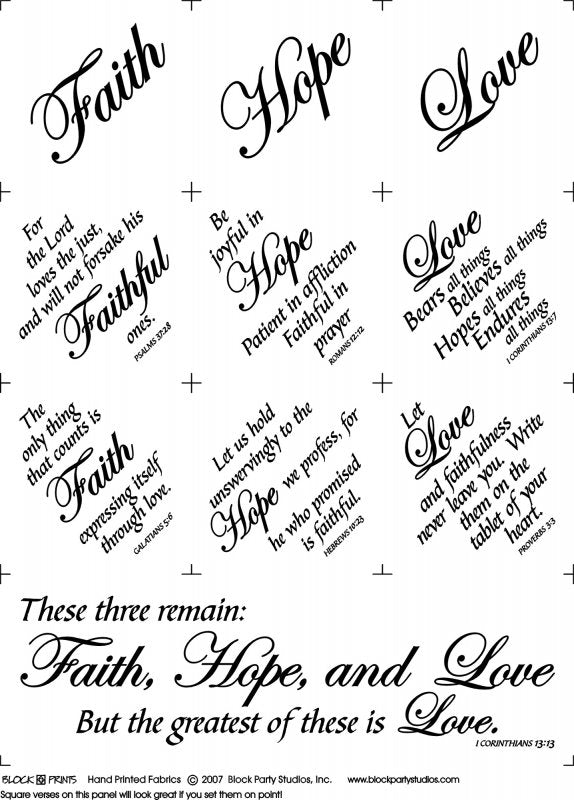 Faith
Hope
Love
For
the Lord
loves the just,
and will not forsake his
Faithful
ones.
PSALMS 37:28
Be
joyful in
Hope
Patient in affliction
Faithful in
prayer
ROMANS 12:12
Love
Bears all things
Believes all things
Hopes all things
Endures
all things
I CORINTHIANS 13:7
The
only thing
that counts is
Faith
expressing itself
through love.
GALATIANS 5:6
Let us hold
unswervingly to the
Hope we profess, for
he who promised
is faithful.
HEBREWS 10:23
Let
Love
and faithfulness
never leave you. Write
them on the
tablet of your
heart.
PROVERBS 3:3
These three remain:
Faith, Hope, and Love
But the greatest of these is Love.
I CORINTHIANS 13:13
BLOCK PRINTS Hand Printed Fabrics © 2007 Block Party Studios, Inc. www.blockpartystudios.com
Square verses on this panel will look great if you set them on point!